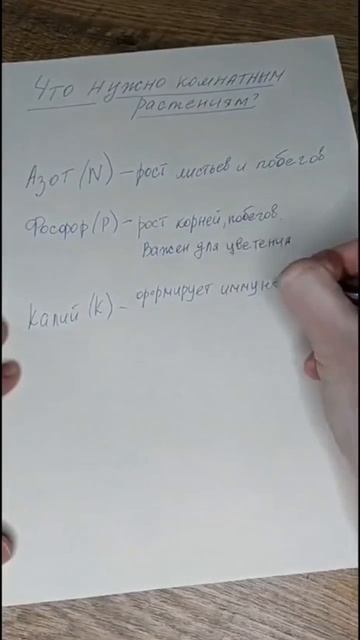 Что нужно комнатным
растениям?
Азот (N) – рост листьев и побегов
Фосфор (P) – рост корней, побегов.
Важен для цветения
Калий (K) – формирует иммун